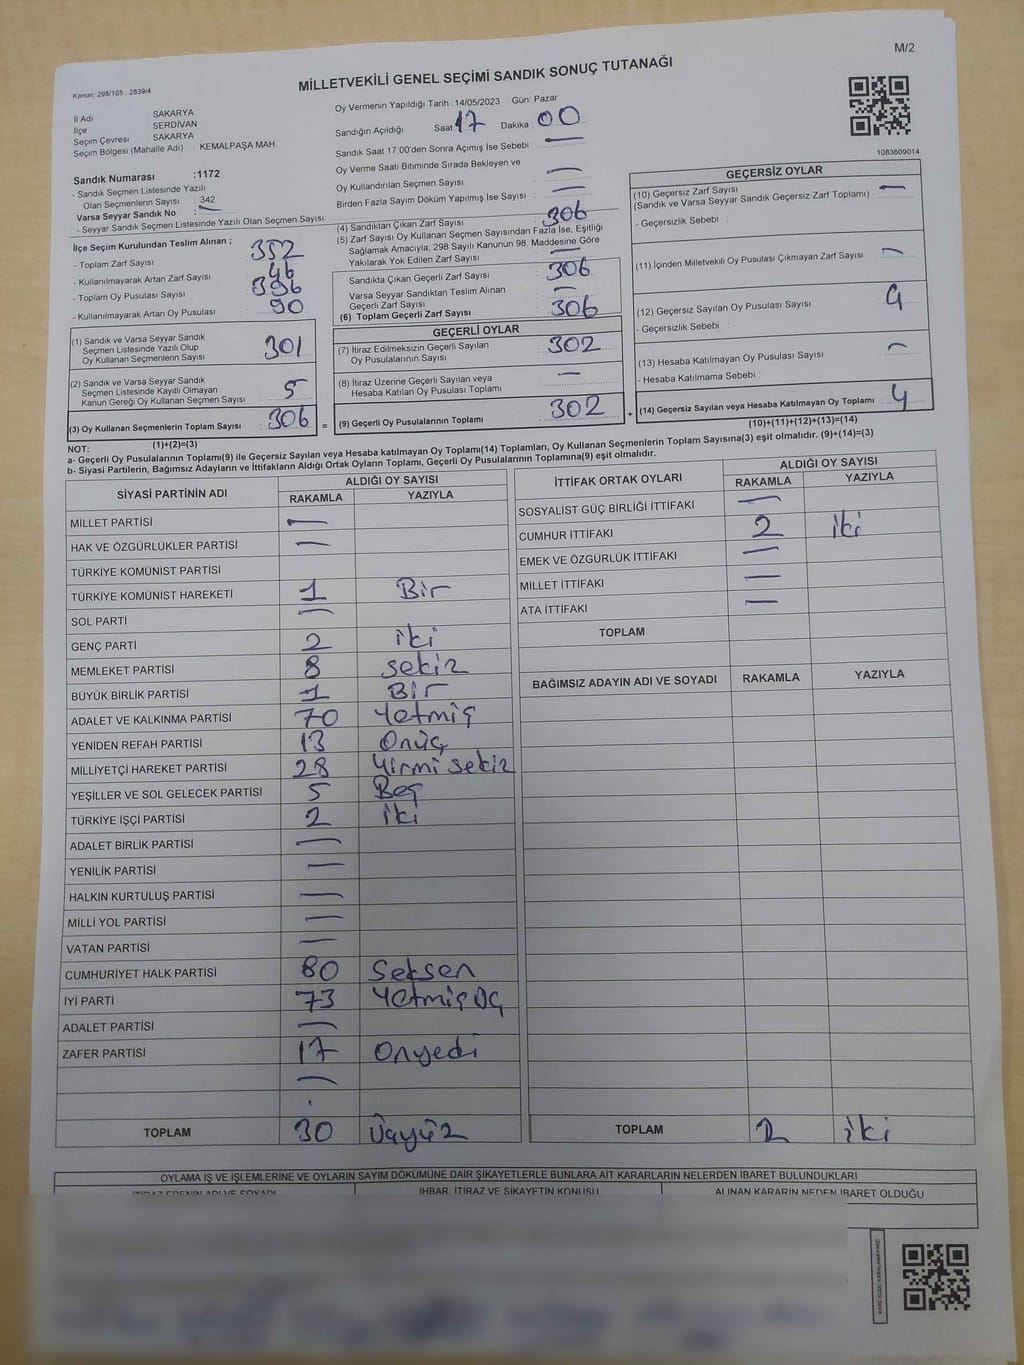 M/2
Kanun: 298/105 , 2839/4
MİLLETVEKİLİ GENEL SEÇİMİ SANDIK SONUÇ TUTANAĞI
İl Adı : SAKARYA
İlçe : SERDİVAN
Seçim Çevresi : SAKARYA
Seçim Bölgesi (Mahalle Adı) KEMALPAŞA MAH.
Sandık Numarası :1172
- Sandık Seçmen Listesinde Yazılı
Olan Seçmenlerin Sayısı : 342
Varsa Seyyar Sandık No : —
- Seyyar Sandık Seçmen Listesinde Yazılı Olan Seçmen Sayısı:
İlçe Seçim Kurulundan Teslim Alınan ;
- Toplam Zarf Sayısı : 352
- Kullanılmayarak Artan Zarf Sayısı : 46
- Toplam Oy Pusulası Sayısı : 396
- Kullanılmayarak Artan Oy Pusulası : 90
(1) Sandık ve Varsa Seyyar Sandık
Seçmen Listesinde Yazılı Olup
Oy Kullanan Seçmenlerin Sayısı : 301
(2) Sandık ve Varsa Seyyar Sandık
Seçmen Listesinde Kayıtlı Olmayan
Kanun Gereği Oy Kullanan Seçmen Sayısı : 5
(3) Oy Kullanan Seçmenlerin Toplam Sayısı : 306
(1)+(2)=(3)
Oy Vermenin Yapıldığı Tarih : 14/05/2023 Gün: Pazar
Sandığın Açıldığı Saat: 17 Dakika : 00
Sandık Saat 17:00'den Sonra Açımış İse Sebebi : —
Oy Verme Saati Bitiminde Sırada Bekleyen ve
Oy Kullandırılan Seçmen Sayısı : —
Birden Fazla Sayım Döküm Yapılmış İse Sayısı : —
(4) Sandıktan Çıkan Zarf Sayısı : 306
(5) Zarf Sayısı Oy Kullanan Seçmen Sayısından Fazla İse, Eşitliği
Sağlamak Amacıyla; 298 Sayılı Kanunun 98. Maddesine Göre
Yakılarak Yok Edilen Zarf Sayısı : —
Sandıkta Çıkan Geçerli Zarf Sayısı : 306
Varsa Seyyar Sandıktan Teslim Alınan
Geçerli Zarf Sayısı : —
(6) Toplam Geçerli Zarf Sayısı : 306
GEÇERLİ OYLAR
(7) İtiraz Edilmeksizin Geçerli Sayılan
Oy Pusulalarının Sayısı : 302
(8) İtiraz Üzerine Geçerli Sayılan veya
Hesaba Katılan Oy Pusulası Toplamı : —
= (9) Geçerli Oy Pusulalarının Toplamı : 302
1083609014
GEÇERSİZ OYLAR
(10) Geçersiz Zarf Sayısı : —
(Sandık ve Varsa Seyyar Sandık Geçersiz Zarf Toplamı)
- Geçersizlik Sebebi :
(11) İçinden Milletvekili Oy Pusulası Çıkmayan Zarf Sayısı : —
(12) Geçersiz Sayılan Oy Pusulası Sayısı : 4
- Geçersizlik Sebebi :
(13) Hesaba Katılmayan Oy Pusulası Sayısı : —
- Hesaba Katılmama Sebebi :
+ (14) Geçersiz Sayılan veya Hesaba Katılmayan Oy Toplamı : 4
(10)+(11)+(12)+(13)=(14)
NOT:
a- Geçerli Oy Pusulalarının Toplamı(9) ile Geçersiz Sayılan veya Hesaba katılmayan Oy Toplamı(14) Toplamları, Oy Kullanan Seçmenlerin Toplam Sayısına(3) eşit olmalıdır. (9)+(14)=(3)
b- Siyasi Partilerin, Bağımsız Adayların ve İttifakların Aldığı Ortak Oyların Toplamı, Geçerli Oy Pusulalarının Toplamına(9) eşit olmalıdır.
SİYASİ PARTİNİN ADI ALDIĞI OY SAYISI
RAKAMLA YAZIYLA
MİLLET PARTİSİ —
HAK VE ÖZGÜRLÜKLER PARTİSİ —
TÜRKİYE KOMÜNİST PARTİSİ
TÜRKİYE KOMÜNİST HAREKETİ 1 Bir
SOL PARTİ —
GENÇ PARTİ 2 iki
MEMLEKET PARTİSİ 8 sekiz
BÜYÜK BİRLİK PARTİSİ 1 Bir
ADALET VE KALKINMA PARTİSİ 70 Yetmiş
YENİDEN REFAH PARTİSİ 13 Onüç
MİLLİYETÇİ HAREKET PARTİSİ 28 Yirmi sekiz
YEŞİLLER VE SOL GELECEK PARTİSİ 5 Beş
TÜRKİYE İŞÇİ PARTİSİ 2 iki
ADALET BİRLİK PARTİSİ —
YENİLİK PARTİSİ —
HALKIN KURTULUŞ PARTİSİ —
MİLLİ YOL PARTİSİ —
VATAN PARTİSİ —
CUMHURİYET HALK PARTİSİ 80 Seksen
İYİ PARTİ 73 Yetmiş üç
ADALET PARTİSİ —
ZAFER PARTİSİ 17 Onyedi
—
TOPLAM 30 Üçyüz
İTTİFAK ORTAK OYLARI ALDIĞI OY SAYISI
RAKAMLA YAZIYLA
SOSYALİST GÜÇ BİRLİĞİ İTTİFAKI —
CUMHUR İTTİFAKI 2 iki
EMEK VE ÖZGÜRLÜK İTTİFAKI —
MİLLET İTTİFAKI —
ATA İTTİFAKI —
TOPLAM
BAĞIMSIZ ADAYIN ADI VE SOYADI RAKAMLA YAZIYLA
TOPLAM 2 iki
OYLAMA İŞ VE İŞLEMLERİNE VE OYLARIN SAYIM DÖKÜMÜNE DAİR ŞİKAYETLERLE BUNLARA AİT KARARLARIN NELERDEN İBARET BULUNDUKLARI
İTİRAZ EDENİN ADI VE SOYADI İHBAR, İTİRAZ VE ŞİKAYETİN KONUSU ALINAN KARARIN NEDEN İBARET OLDUĞU